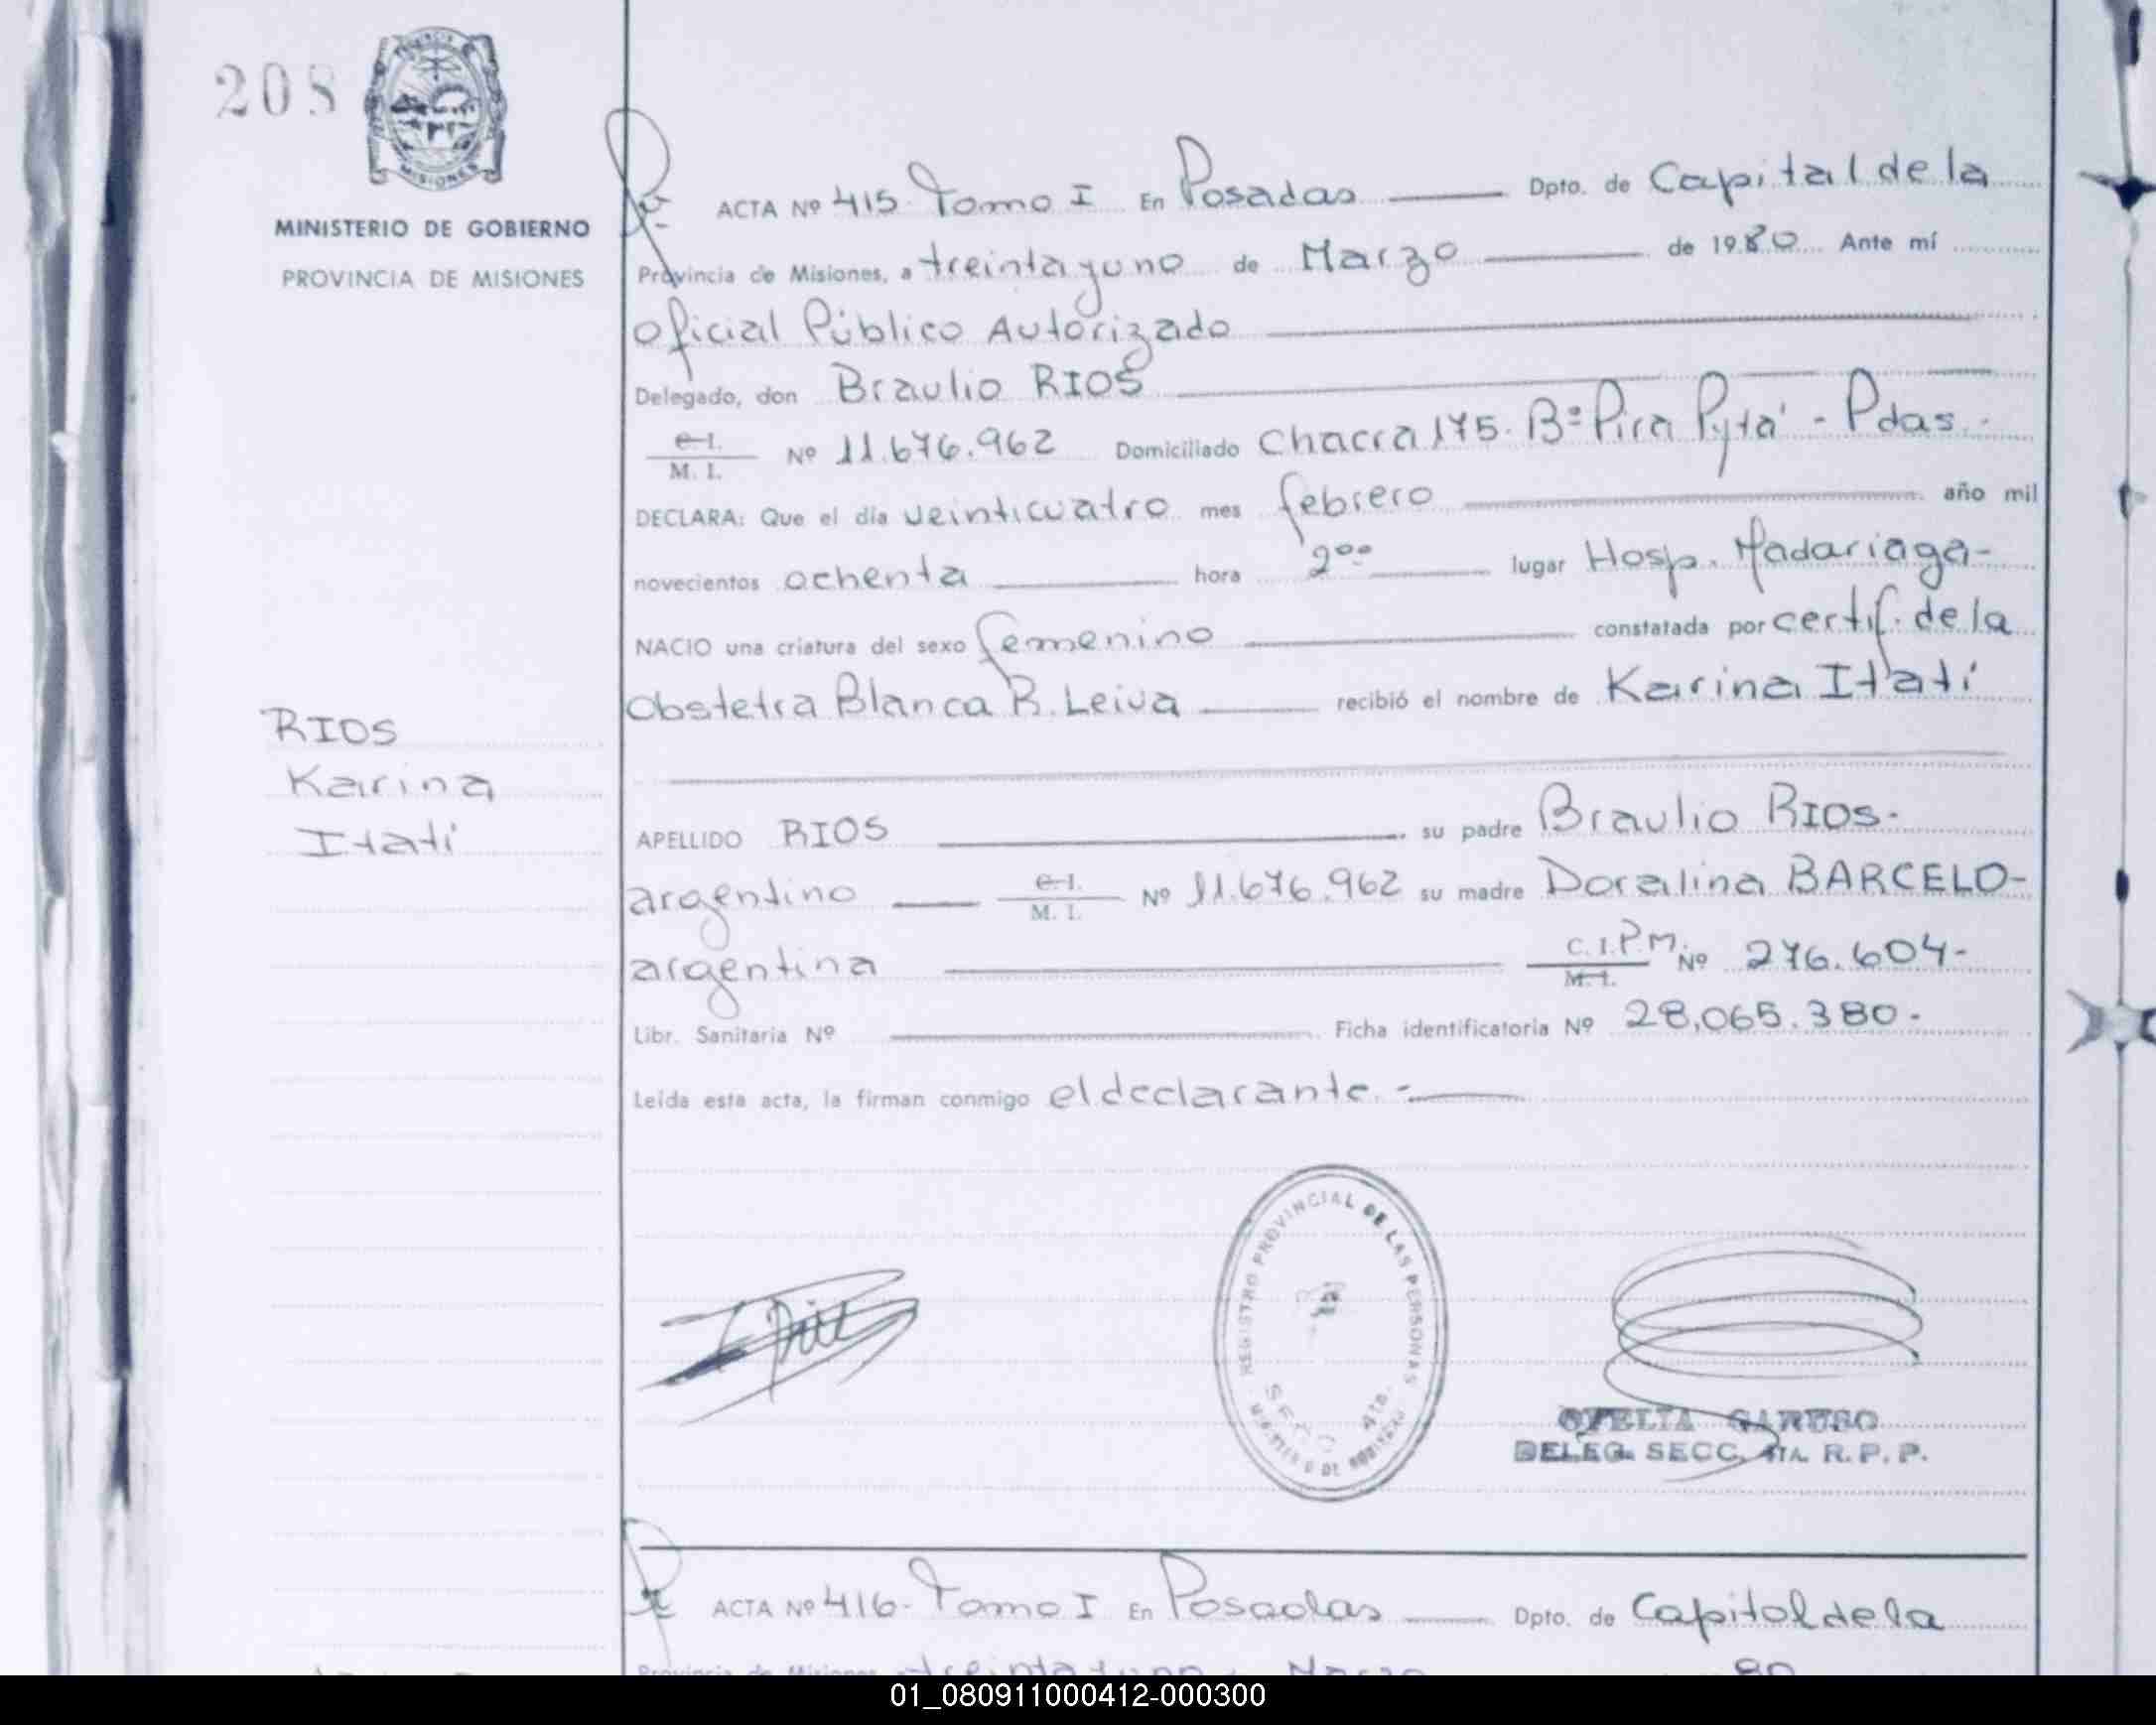 208
PROVINCIA DE
MISIONES
MINISTERIO DE GOBIERNO
PROVINCIA DE MISIONES
RIOS
Karina
Itatí
ACTA Nº 415. Tomo I En Posadas Dpto. de Capital de la
Provincia de Misiones, a treinta y uno de Marzo de 1980 Ante mí
Oficial Público Autorizado
Delegado, don Braulio RIOS
C.I.
M. I. Nº 11.676.962 Domiciliado Chacra 175. Bº Pira Pytá - Pdas.-
DECLARA: Que el día veinticuatro mes febrero año mil
novecientos ochenta hora 2⁰⁰ lugar Hosp. Madariaga-
NACIO una criatura del sexo femenino constatada por certif. de la
Obstetra Blanca R. Leiva recibió el nombre de Karina Itatí
APELLIDO RIOS su padre Braulio RIOS.
argentino C.I. M. I. Nº 11.676.962 su madre Doralina BARCELO-
argentina C.I.P.M. M. I. Nº 276.604-
Libr. Sanitaria Nº Ficha identificatoria Nº 28,065.380.
Leída esta acta, la firman conmigo el declarante.-
REGISTRO PROVINCIAL DE LAS PERSONAS
SECC. 4TA.
MINISTERIO DE GOBIERNO
OFELIA CARUSO
DELEG. SECC. 4TA. R. P. P.
ACTA Nº 416- Tomo I En Posadas Dpto. de Capital de la
Provincia de Misiones treinta y uno Marzo 80
01_080911000412-000300